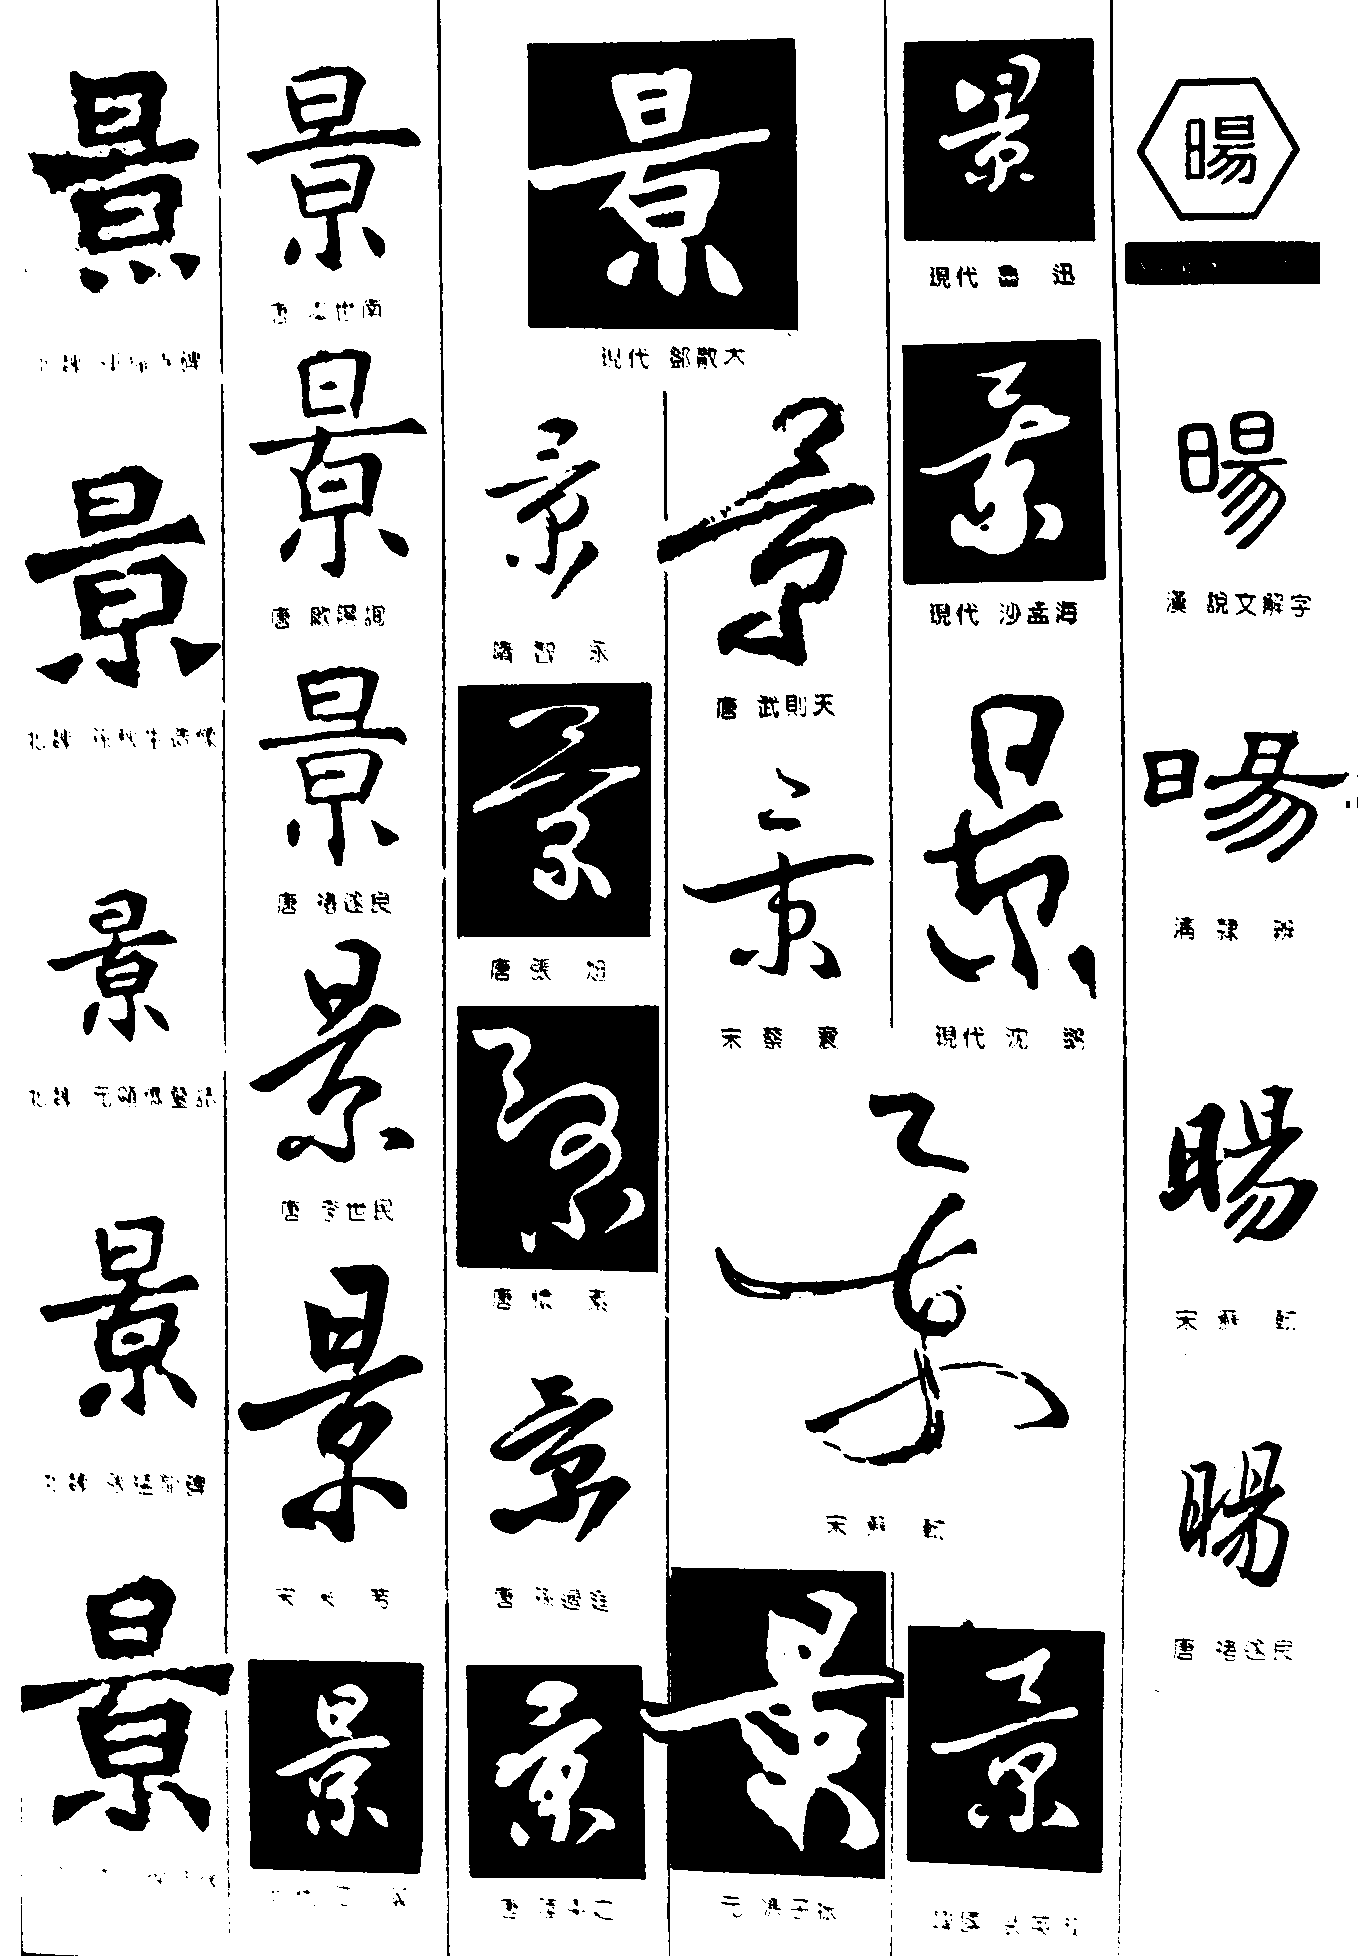 暘
暘
漢 說文解字
暘
漢 隸 辨
暘
宋 蘇 軾
暘
唐 褚遂良
景
現代 魯 迅
景
現代 沙孟海
景
現代 沈 鵬
景
現代 鄧散木
景
唐 武則天
景
宋 蔡 襄
景
宋 蘇 軾
景
景
元 馮子振
景
隋 智 永
景
唐 張 旭
景
唐 懷 素
景
唐 孫過庭
景
景
唐 虞世南
景
唐 歐陽詢
景
唐 褚遂良
景
唐 李世民
景
宋 米 芾
景
景
北魏
景
北魏 孫秋生造像
景
北魏
景
北魏
景